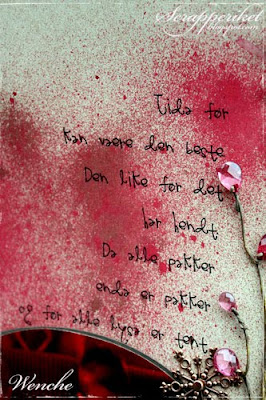 Scrapperiket
blogspot.com
Tida før
kan være den beste
Den like før det
har hendt
Da alle pakker
enda er pakker
og før alle lysa er tent
Wenche